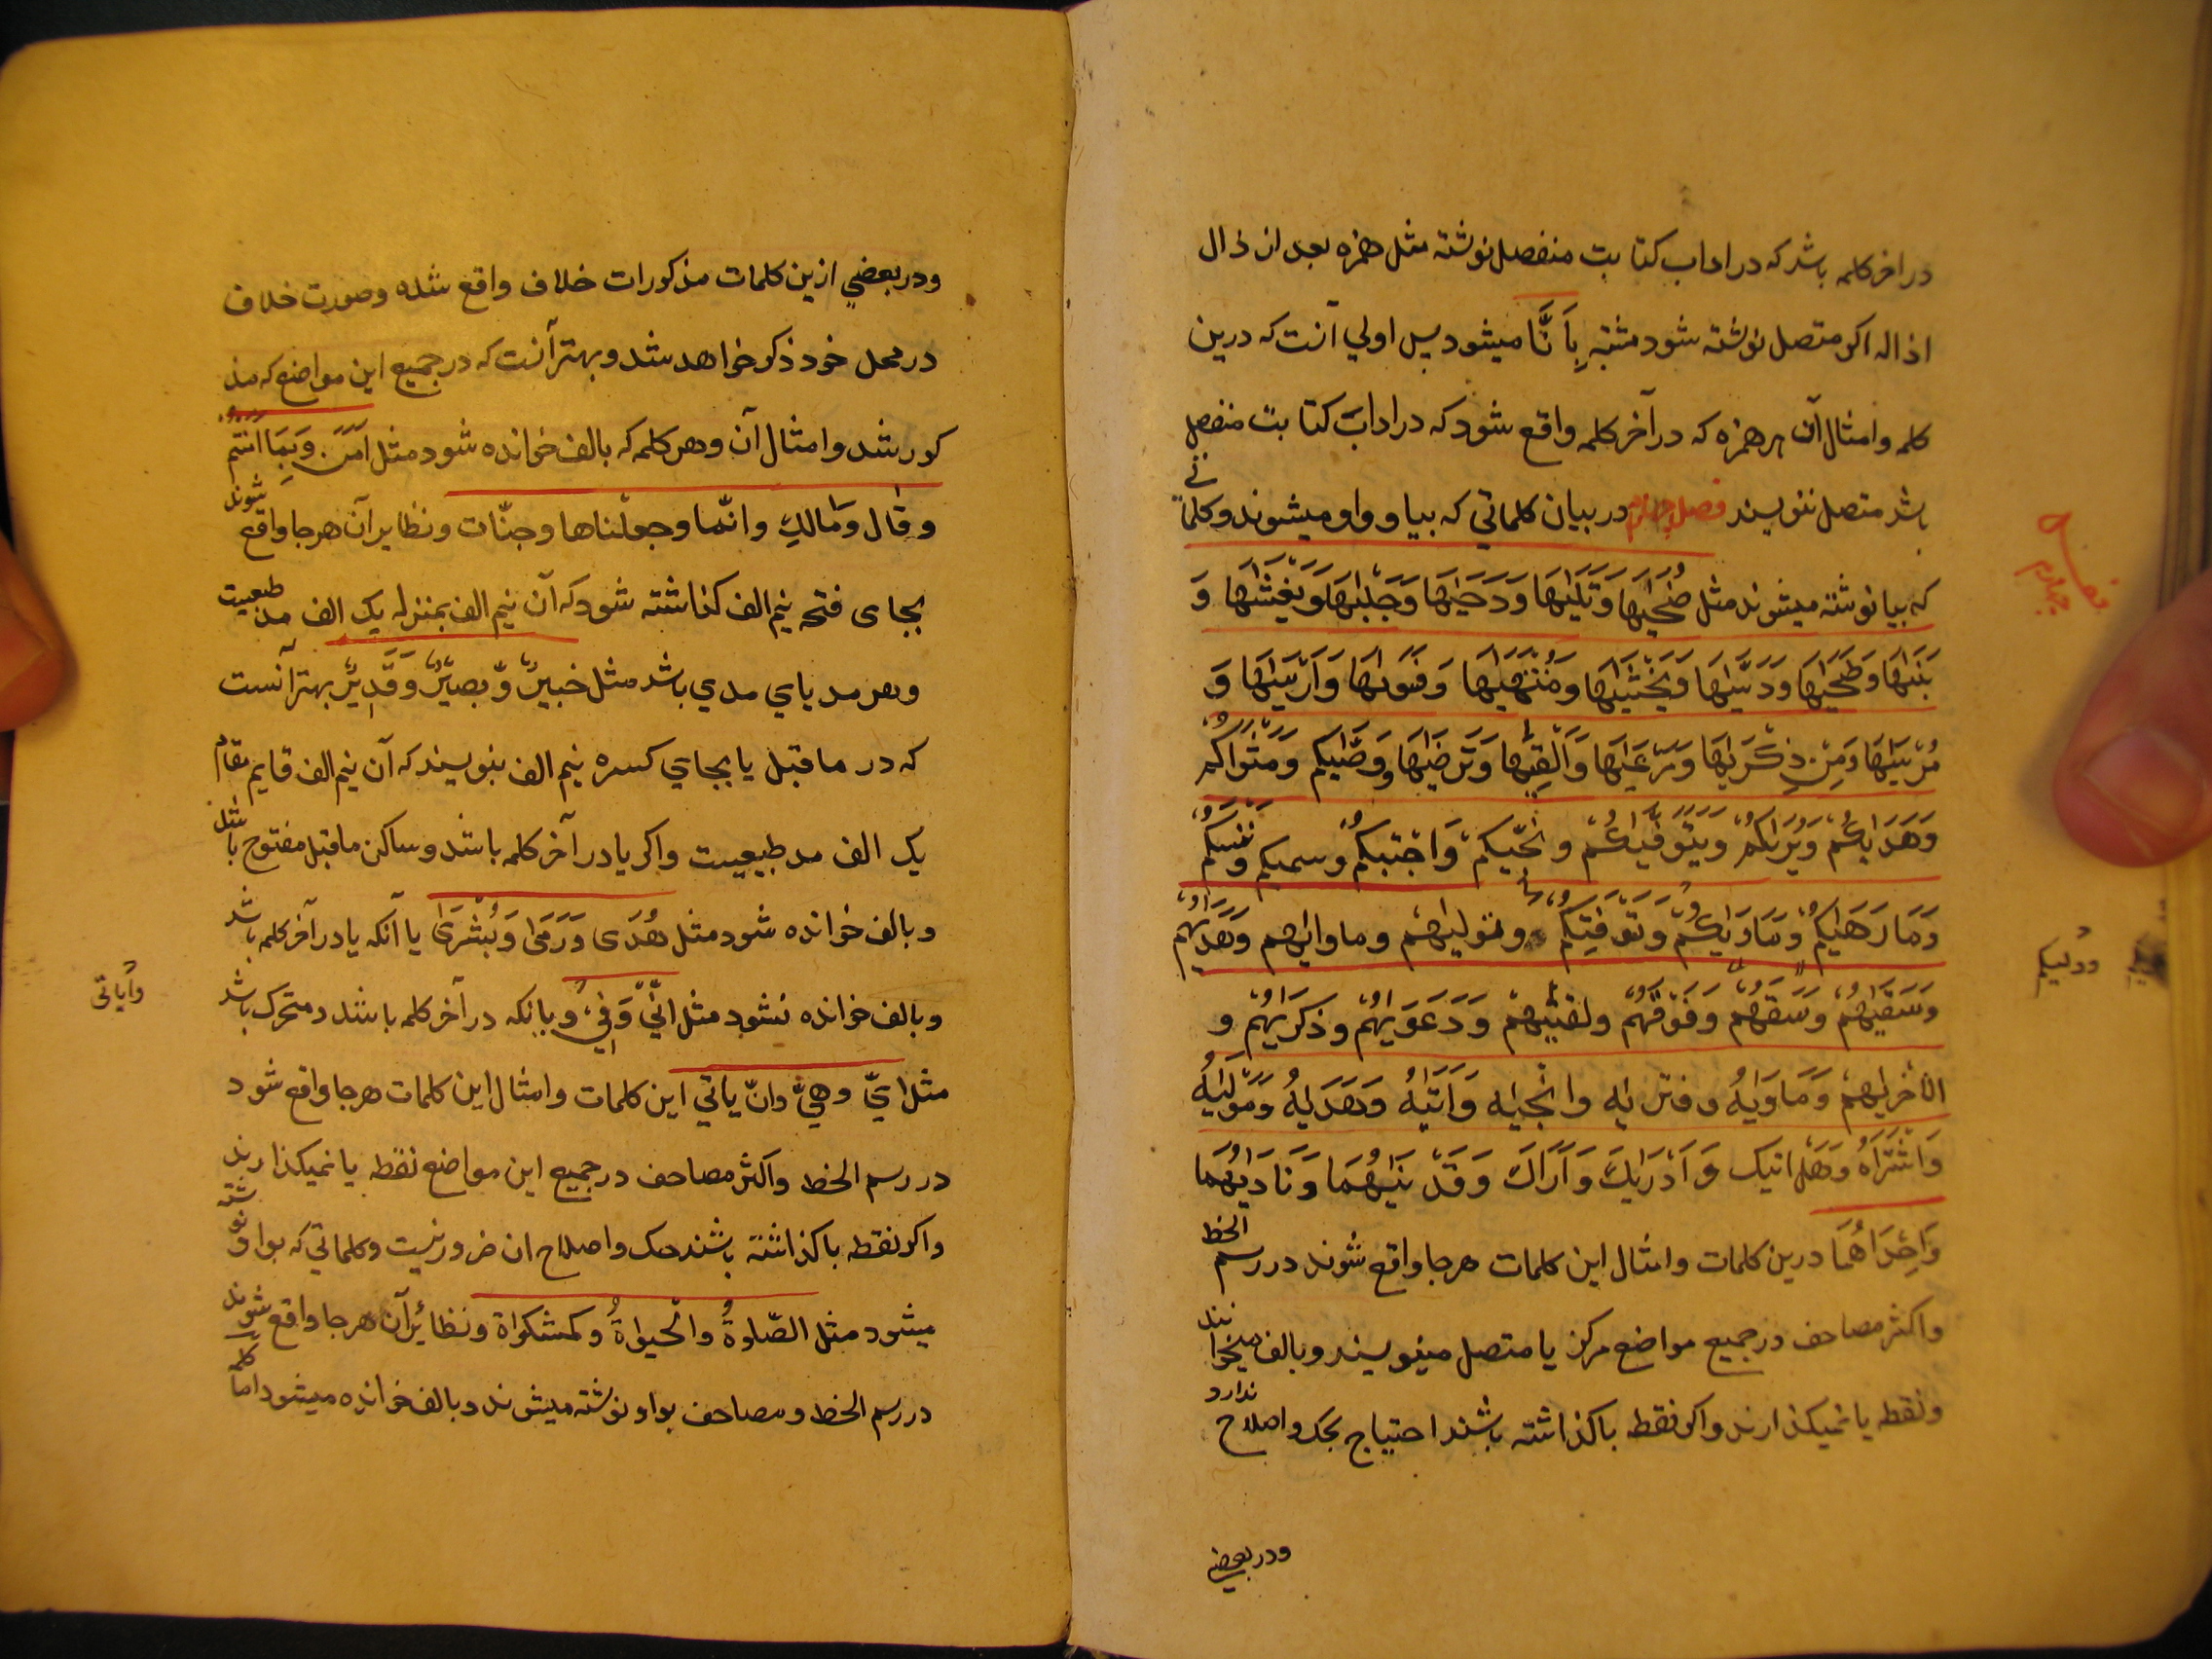 در اخر کلمه باشد که در اداب کتابت منفصل نوشته مثل همزه بعد از ذال
اذاله اکر متصل نوشته شود مشتبه بِاَنَّا میشود پس اولی آنت که درین
کلمه وامثال آن هر همزه که در آخر کلمه واقع شود که در ادابَ کتابت منفصل
باشد متصل ننویسند فصل چهارم در بیان کلماتی که بیا و واو میشوند و کلماتی
فصل چهارم
که بیا نوشته میشوند مثل ضُحَیٰهَا وَتَلَیٰهَا وَدَحَیٰهَا وَجَلَّیٰهَا وَیَغْشَیٰهَا وَ
بَنَیٰهَا وَطَحَیٰهَا وَدَسَّیٰهَا وَیَخْشَیٰهَا وَمُنْتَهَیٰهَا وَفَسَوّٰیهَا وَاَرْسَیٰهَا وَ
مُرْسَیٰهَا وَمِنْ ذِکْرَیٰهَا وَمَرْعَیٰهَا وَاَلْقَیٰهَا وَتَرْضَیٰهَا وَوَصّٰیکم وَمَثْوَاکُم
وَهَدَیٰکُمْ وَیَرَیٰکُمْ وَیَتَوَفّٰیکُمْ وانجّیکم وَاجْتَبیکُم وسمیکم وَنَنْسیٰکُم
وَمَا نَهَیٰکُم وَمَاوَیٰکُمْ وَتَوفّیکُم وتولیٰهم وماوایهم وَهَدَیٰهُم
ودلیکم
وَسَقَیٰهُم وَ وَ ولقیٰهم وَدَعْوَیٰهُم وذکریٰهُم و
الاُخْرَیٰهُم وَمَاوَیٰهُ وفتریه وانجَیٰه وَاتَیٰهُ وَهَدَیٰهُ وَمَوْلَیٰهُ
وَاشْتَرَاهُ وَهَل اتیک وَاَدْرَایکَ وَاَرَاکَ وَقَدْ وَنَادَیٰهُمَا
وَاِحْدَاهُمَا درین کلمات وامثال این کلمات هرجا واقع شوند در رسم الخط
واکثر مصاحف در جمیع مواضع مرکز یا متصل مینویسند وبالف میخوانند
ونقطه یا نمیکذارند واکر نقطه باکذاشته باشند احتیاج بحک واصلاح ندارد
ودر بعضی
ودر بعضی ازین کلمات مذکورات خلاف واقع شده وصورت خلاف
در محل خود ذکر خواهد شد وبهتر آنت که در جمیع این مواضع که مذ
کور شد وامثال آن وهر کلمه که بالف خوانده شود مثل اٰمَنَ وَبِمَا اَنْتُم
وقال وَمٰالکِ وانّما وجعلْناها وجنّات ونظایر آن هر جا واقع شوند
بجای فتحه نیم الف کذاشته شود که آن نیم الف بمنزله یک الف مد طبعیت
وهر مد یای مدی باشد مثل خبیرٌ وّبصیرٌ وَقَدِیْرٌ بهتر آنست
که در ما قبل یا بجای کسره نیم الف بنویسند که آن نیم الف قایم مقام
یک الف مد طبیعیت واکر یا در آخر کلمه باشد وساکن ماقبل مفتوح باشد
وبالف خوانده شود مثل هُدَی وَرَمَیٰ وَبُشْرَیٰ یا آنکه یا در آخر کلمه باشد
وبالف خوانده نشود مثل انّی وَفِی وبانکه در آخر کلمه باشند ومتحرک باشد
وآیاتی
مثل ایّ وهیَ وانّ یاتی این کلمات وامثال این کلمات هرجا واقع شود
در رسم الخط واکثر مصاحف در جمیع این مواضع نقطه یا نمیکذارند
واکر نقطه باکذاشته باشند حک واصلاح ان ضرور نیست وکلماتی که بواو نوشته
میشود مثل الصّلوةُ والْحیوٰةُ وکمشکوٰاة ونظائر آن هرجا واقع شوند
در رسم الخط ومصاحف بواو نوشته میشوند وبالف خوانده میشود اما کلمه